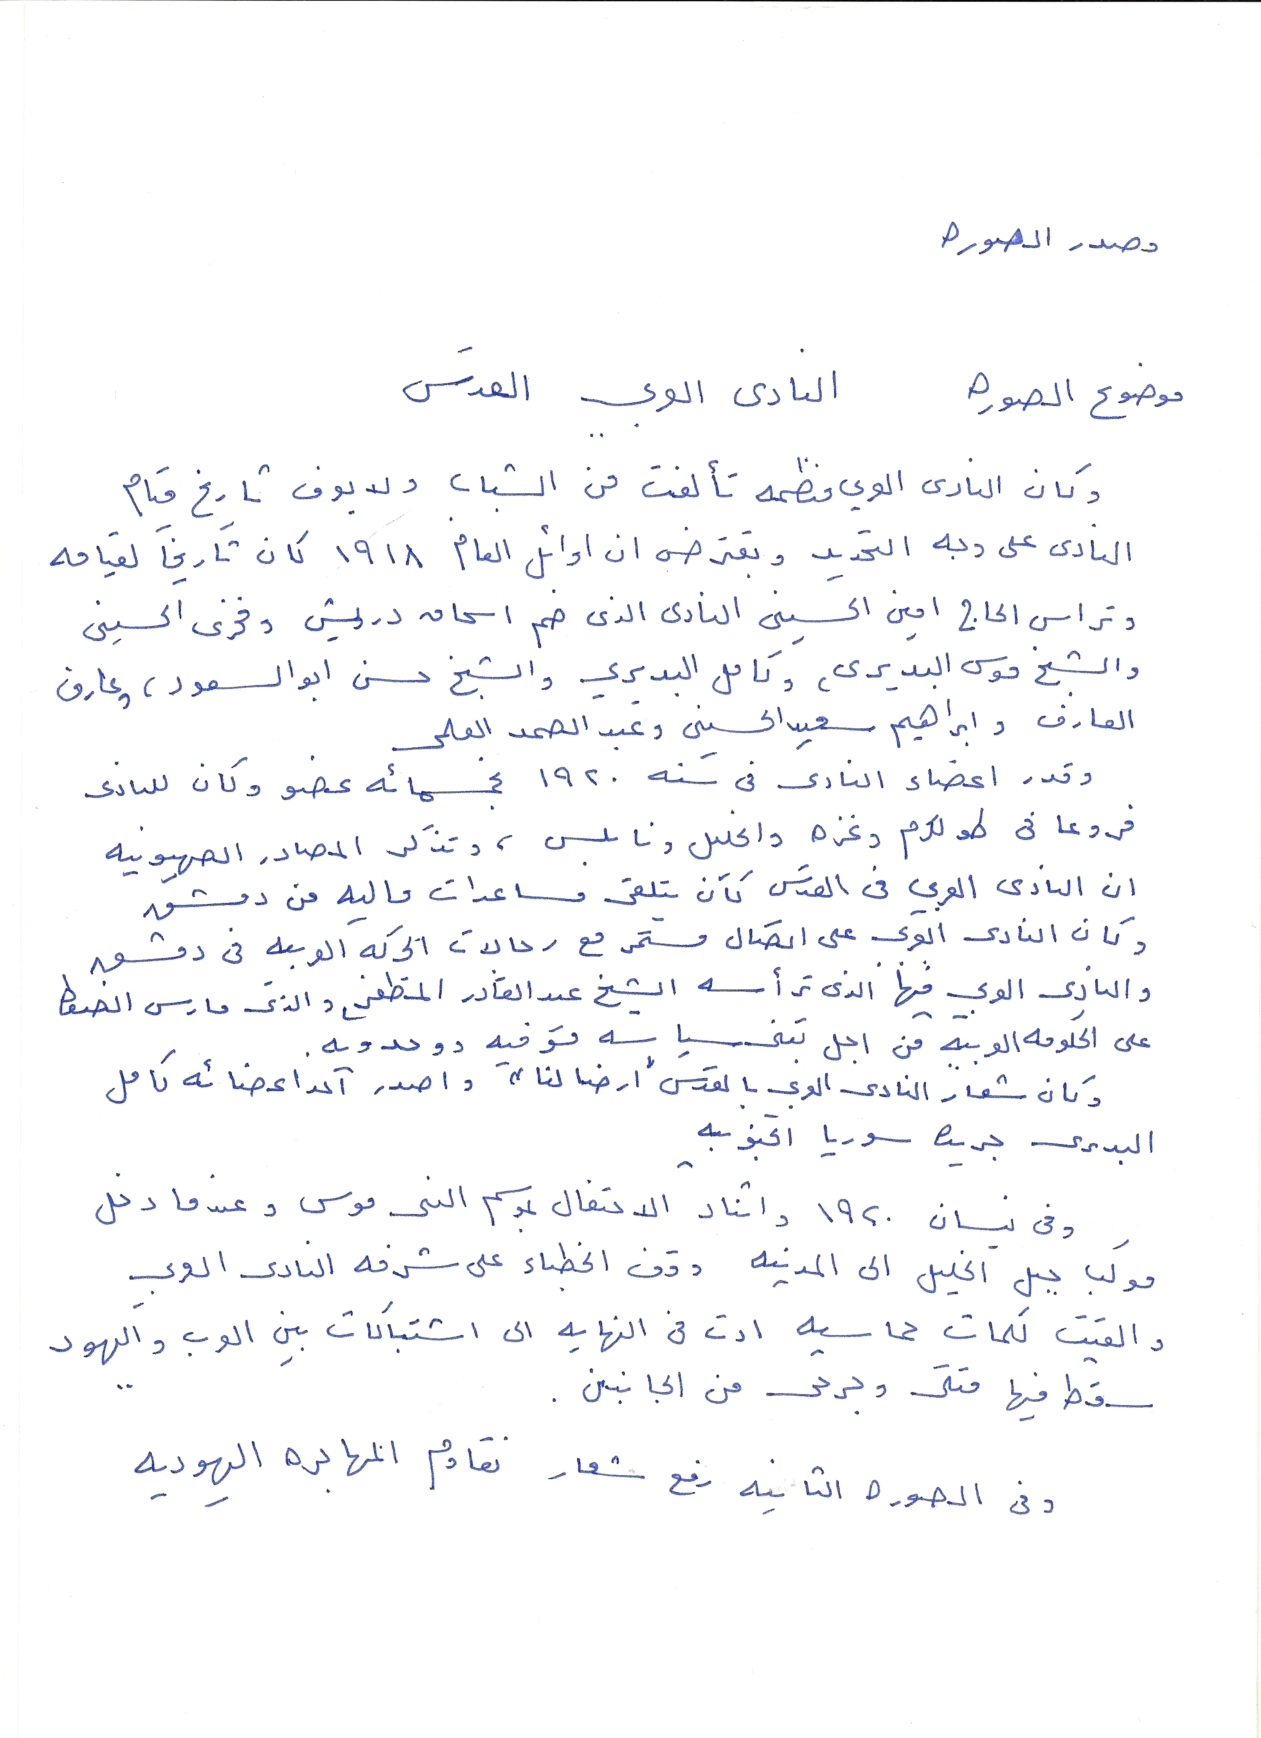 مصدر الصوره
موضوع الصوره النادى العربي القدس
وكان النادى العربي منظمه تألفت من الشباب ولا يعرف تاريخ قيام
النادى على وجه التحديد ويفترض ان اوائل العام ١٩١٨ كان تاريخاً لقيامه
وتراس الحاج امين الحسينى النادى الذى ضم اسحاق درويش وفخرى الحسينى
والشيخ موسى البديرى، وكامل البديري والشيخ حسن ابو السعود، وعارف
العارف وابراهيم سعيد الحسينى وعبد الصمد العلمى
وقدر اعضاء النادى فى سنه ١٩٢٠ بخمسمائه عضو وكان للنادى
فروعا فى طولكرم وغزه والخليل ونابلس، وتذكر المصادر الصهيونيه
ان النادى العربي فى القدس كان يتلقى مساعدات ماليه من دمشق
وكان النادى العربي على اتصال مستمر مع رجالات الحركه العربيه فى دمشق
والنادى العربي فيها الذى ترأسه الشيخ عبد القادر المظفر والذى مارس الضغط
على الحكومه العربيه من اجل تبنى سياسه وحدويه.
وكان شعار النادى العربي بالقدس "ارضنا لنا" واصدر آحد اعضائه كامل
البديرى جريدة سوريا الجنوبيه
وفى نيسان ١٩٢٠ واثناء الاحتفال بموسم النبى موسى وعندما دخل
موكب جبل الخليل الى المدينه وقف الخطباء على شرفه النادى العربي
والقيت كلمات حماسيه ادت فى النهايه الى اشتباكات بين العرب واليهود
سقط فيها قتلى وجرحى من الجانبين.
وفى الصوره الثانيه رفع شعار نقاوم المهاجره اليهوديه